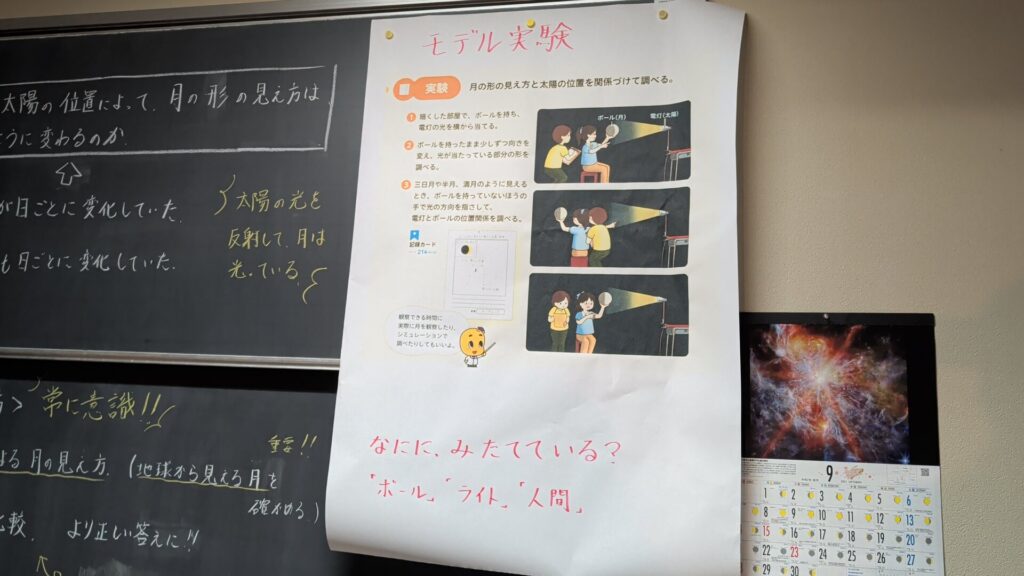 太陽の位置によって、月の形の見え方は
うに変わるのか
が日ごとに変化していた。
も日ごとに変化していた。
太陽の光を
反射して、月は
光っている。
常に意識!!
重要!!
月の見え方.(地球から見える月を
確かめる)
比較. より正しい答えに!!
モデル実験
実験 月の形の見え方と太陽の位置を関係づけて調べる。
1 暗くした部屋で、ボールを持ち、
電灯の光を横から当てる。
2 ボールを持ったまま少しずつ向きを
変え、光が当たっている部分の形を
調べる。
3 三日月や半月、満月のように見える
とき、ボールを持っていないほうの
手で光の方向を指さして、
電灯とボールの位置関係を調べる。
記録カード
ボール(月) 電灯(太陽)
観察できる時間に
実際に月を観察したり、
シミュレーションで
調べたりしてもいいよ。
なにに、みたてている?
「ボール」「ライト」「人間」
9
1 2 3 4 5 6
8 9 10 11 12 13
15 16 17 18 19 20
22 23 24 25 26 27
29 30